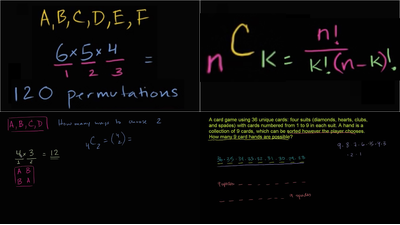 A,B,C,D,E,F
6 × 5 × 4 =
1 2 3
120 permutations
n C k = n! / k!(n-k)!
A, B, C, D How many ways to choose 2
4 × 3 = 12
4C2 = (4 2) =
A B
B A
A card game using 36 unique cards: four suits (diamonds, hearts, clubs,
and spades) with cards numbered from 1 to 9 in each suit. A hand is a
collection of 9 cards, which can be sorted however the player chooses.
How many 9 card hands are possible?
9 spades